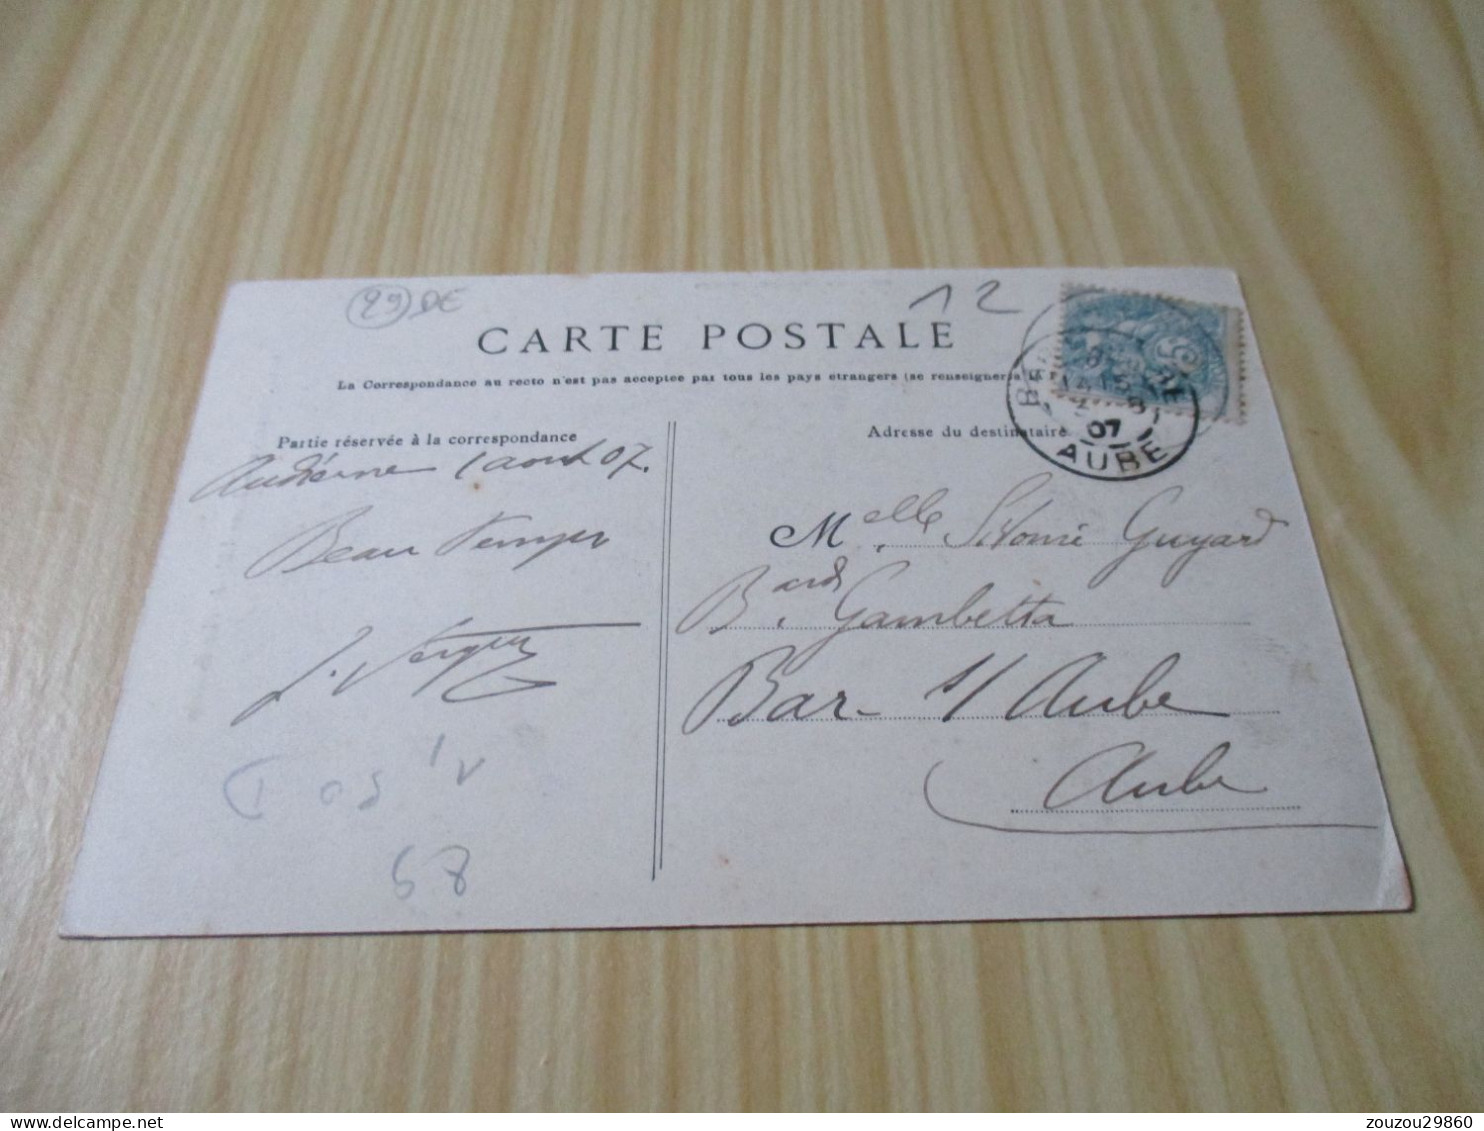 29 DE
12
CARTE POSTALE
La Correspondance au recto n'est pas acceptée par tous les pays étrangers (se renseigner à
Partie réservée à la correspondance
Adresse du destinataire
07
AUBE
Audierne 1 août 07.
Beau temps
Melle Guyard
Bard. Gambetta
Bar s/ Aube
Aube
68
zouzou29860